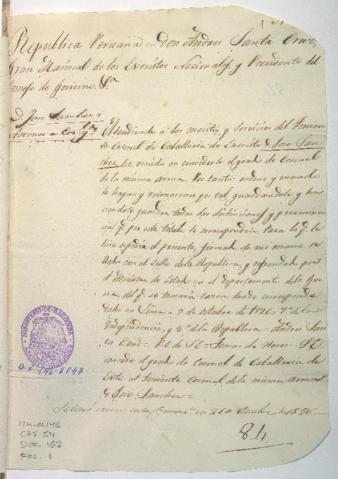 Republica Peruana = Don Andres Santa Cruz,
Gran Mariscal de los Exercitos Nacionales y Presidente del
Consejo de Govierno. &a
D. Jose Sanchez
Atendiendo á los meritos y servicios del Teniente
Coronel de Caballeria de Exercito D. Jose San-
chez he venido en conferirle el grado de Coronel
de la misma arma. Por tanto: ordeno y mando
le hayan y reconoscan por tal guardandole y hac-
iendole guardar todas las distinciones y preeminencias
que por este titulo le corresponden. Para lo q. le
hice expedir el presente, firmado de mi mano se-
llado con el sello de la Republica, y refrendado por
el Ministro de Estado en el departamento de la Guerra
del q. se tomará razon donde corresponda
dado en Lima a 9 de Octubre de 1826. 7º de la
Independencia, y 5º de la Republica = Andres Santa
Cruz =
el grado de Coronel de Caballeria de
Exto. al Teniente Coronel de la misma arma
D. Jose Sanchez =
en 21 de Octubre de 1826.
MINISTERIO DE HACIENDA
O.L. 146-2847
MH-OL146
CAJ. 54
DOC. 152
FOL. 1